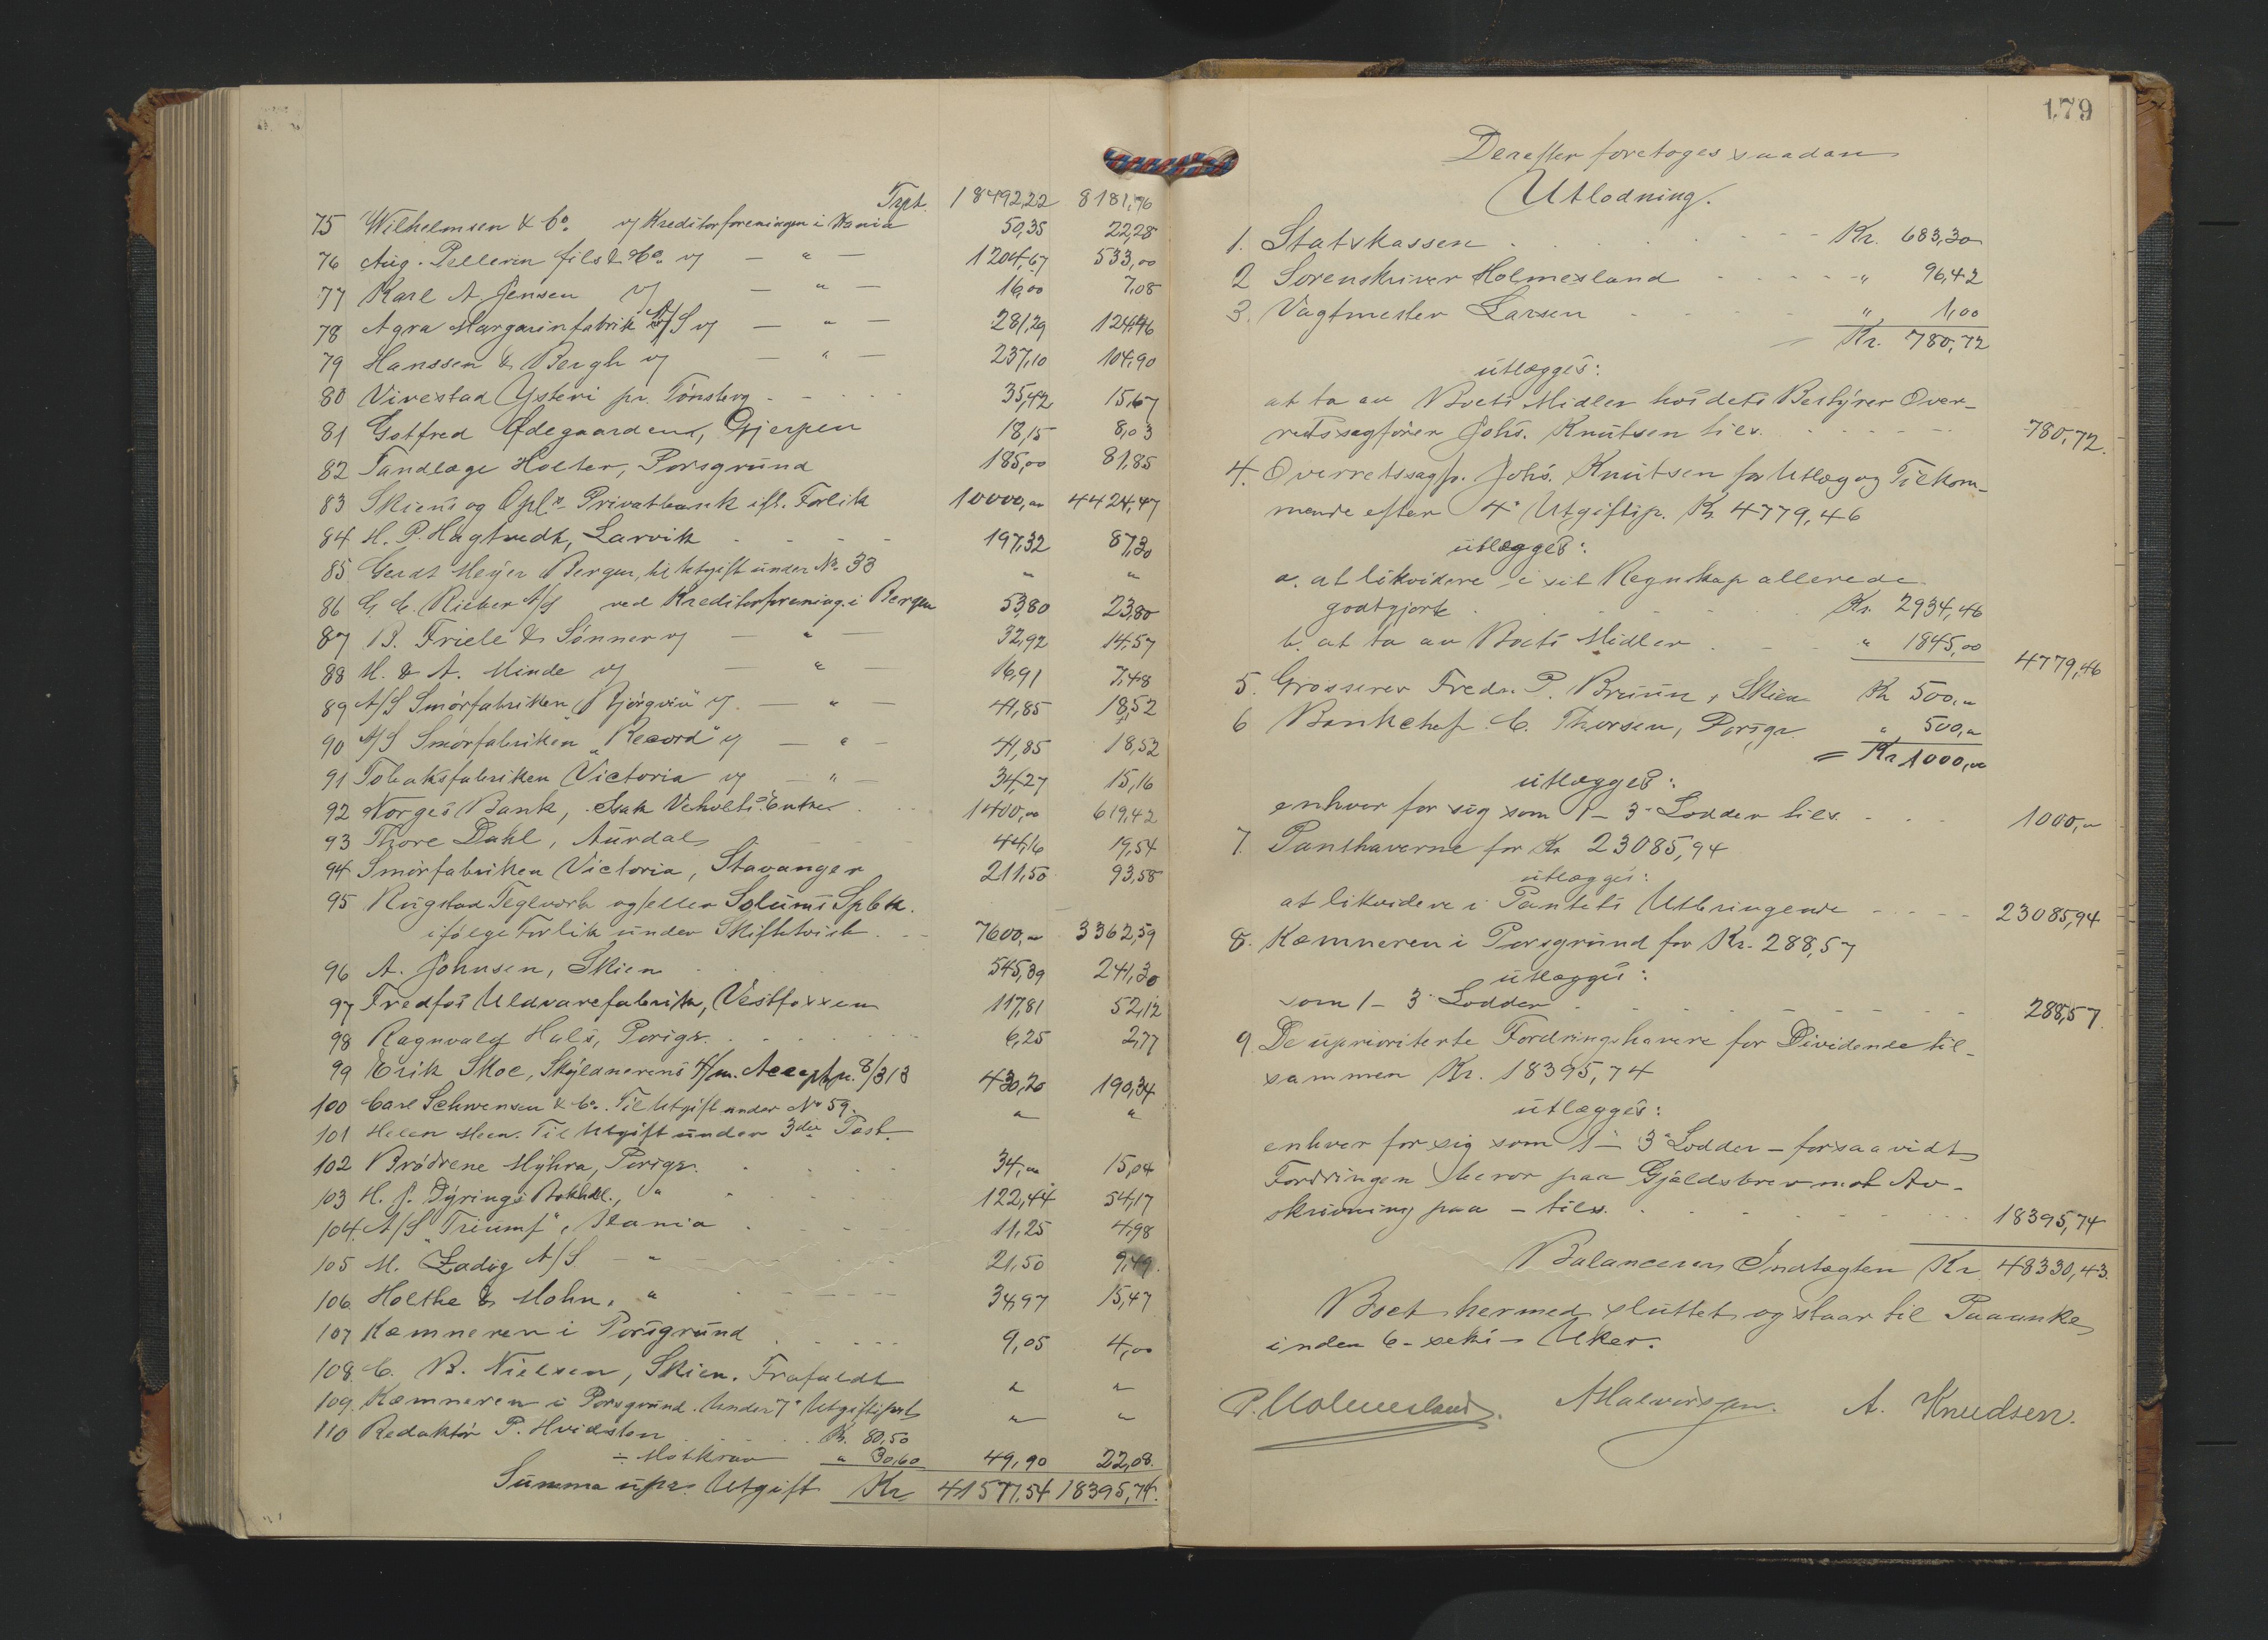 Trpt. 18492,22 8181,76
75 Wilhelmsen & Co. v/ Kreditorforeningen i Krania 50,35 22,28
76 Aug. Pellerin fils & Co. v/ — " — 1204,67 533,00
77 Karl A Jensen v/ — " — 16,00 7,08
78 Agra Margarinfabrik A/S v/ — " — 281,29 124,46
79 Hanssen & Bergh v/ — " — 237,10 104,90
80 Virestad Ysteri pr. Tönsberg 35,42 15,67
81 Gotfred Ødegaardens, Gjerpen 18,15 8,03
82 Tandlæge Holter, Porsgrund 185,00 81,85
83 Skiens og Opl.s Privatbank ifl. Forlik 10000,00 4424,47
84 H. P. Hagtvedt, Larvik 197,32 87,30
85 Gerdt Meyer Bergen, til Utgift under No. 33 " "
86 G. C. Rieber A/S ved Kreditorforening. i Bergen 53,80 23,80
87 B. Friele & Sönner v/ — " — 32,92 14,57
88 M. & A. Minde v/ — " — 16,91 7,48
89 A/S Smörfabriken "Björgvin" v/. — " — 41,85 18,52
90 A/S Smörfabriken "Record" v/ — " — 41,85 18,52
91 Tobaksfabriken Victoria v/ — " — 34,27 15,16
92 Norges Bank, Isak Veholts Entre 1400,00 619,42
93 Thore Dahl, Aurdal 44,16 19,54
94 Smörfabriken Victoria, Stavanger 211,50 93,58
95 Rugstad Teglverk og/eller Solums Spbk.
ifölge Forlik under Skiftetvist 7600,00 3362,59
96 A. Johnsen, Skien 545,39 241,30
97 Fredfos Uldvarefabrik, Vestfossen 117,81 52,12
98 Ragnvald Hals, Porsgr. 6,25 2,77
99 Erik Skoe, Skyldnerens 4/m. Accept pr. 8/3 13 430,20 190,34
100 Carl Schwensen & Co. Til Utgift under No 59. " "
101 Helen Meen. Til Utgift under 3die Post.
102 Brödrene Myhra, Porsgr. 34,00 15,04
103 H. J. Dyrings Bokhdl., " 122,44 54,17
104. A/S "Triumf", Krania 11,25 4,98
105 M. Zadig A/S — " 21,50 9,49.
106. Holthe & Mohn, " 34,97 15,47
107 Kæmneren i Porsgrund 9,05 4,00
108. C. B. Nielsen, Skien. Frafaldt " "
109. Kæmneren i Porsgrund. Under 7' Utgiftspost " "
110 Redaktör P. Hvidsten Kr. 80,50
÷ Motkrav " 30,60 49,90 22,08.
Summa upr. Utgift Kr. 41577,54 18395,74.
179
Derefter foretoges saadan
Utlodning.
1. Statskassen Kr. 683,30
2 Sorenskriver Holmesland " 96,42
3. Vagtmester Larsen " 1,00
= Kr. 780,72
utlægges:
at ta av Boets Midler hos dets Bestyrer Over-
retssagförer Johs. Knutsen tils. 780,72.
4. Overretssagf. Johs. Knutsen for Utlæg og Tilkom-
mende efter 4' Utgiftsp. Kr 4779,46
utlægges:
a. at likvidere i sit Regnskap allerede
godtgjort Kr. 2934,46
b. at ta av Boets Midler " 1845,00 4779,46
5. Grosserer Fredr. P. Bruun, Skien Kr 500,00
6 Bankchef C. Thorsen, Porsgr. " 500,00
= Kr 1000,00
utlægges:
enhver for sig som 1 – 3' Lodder tils. 1000,00
7. Panthaverne for Kr 23085,94
utlægges:
at likvidere i Pantets Utbringende 23085,94
8. Kæmneren i Porsgrund for Kr. 288,57
utlægges:
som 1 – 3' Lodder 288,57.
9. De uprioriterte Fordringshavere for Dividende til-
sammen Kr. 18395,74
utlægges:
enhver for sig som 1 – 3' Lodder – forsaavidt
Fordringen beror paa Gjældsbrev mot Av-
skrivning paa – tils. 18395,74
Balancerer Indtægten Kr. 48330,43.
Boet hermed sluttet og staar til Paaanke
inden 6 – seks – Uker.
P. Holmesland. A Halvorsen. A. Knudsen.